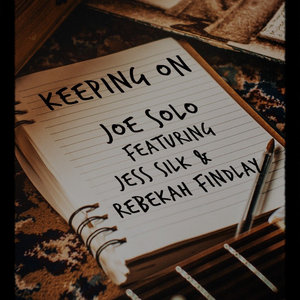 KEEPING ON
JOE SOLO
FEATURING
JESS SILK &
REBEKAH FINDLAY